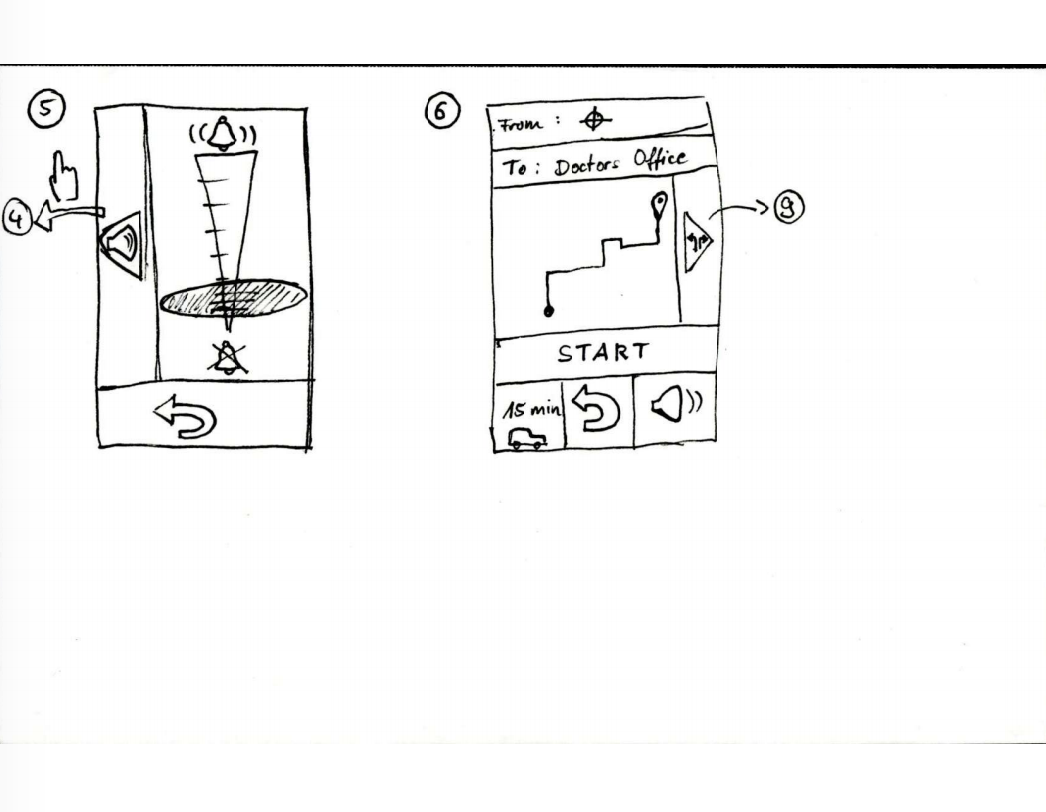 5
6
4
From :
To : Doctors Office
9
START
15 min